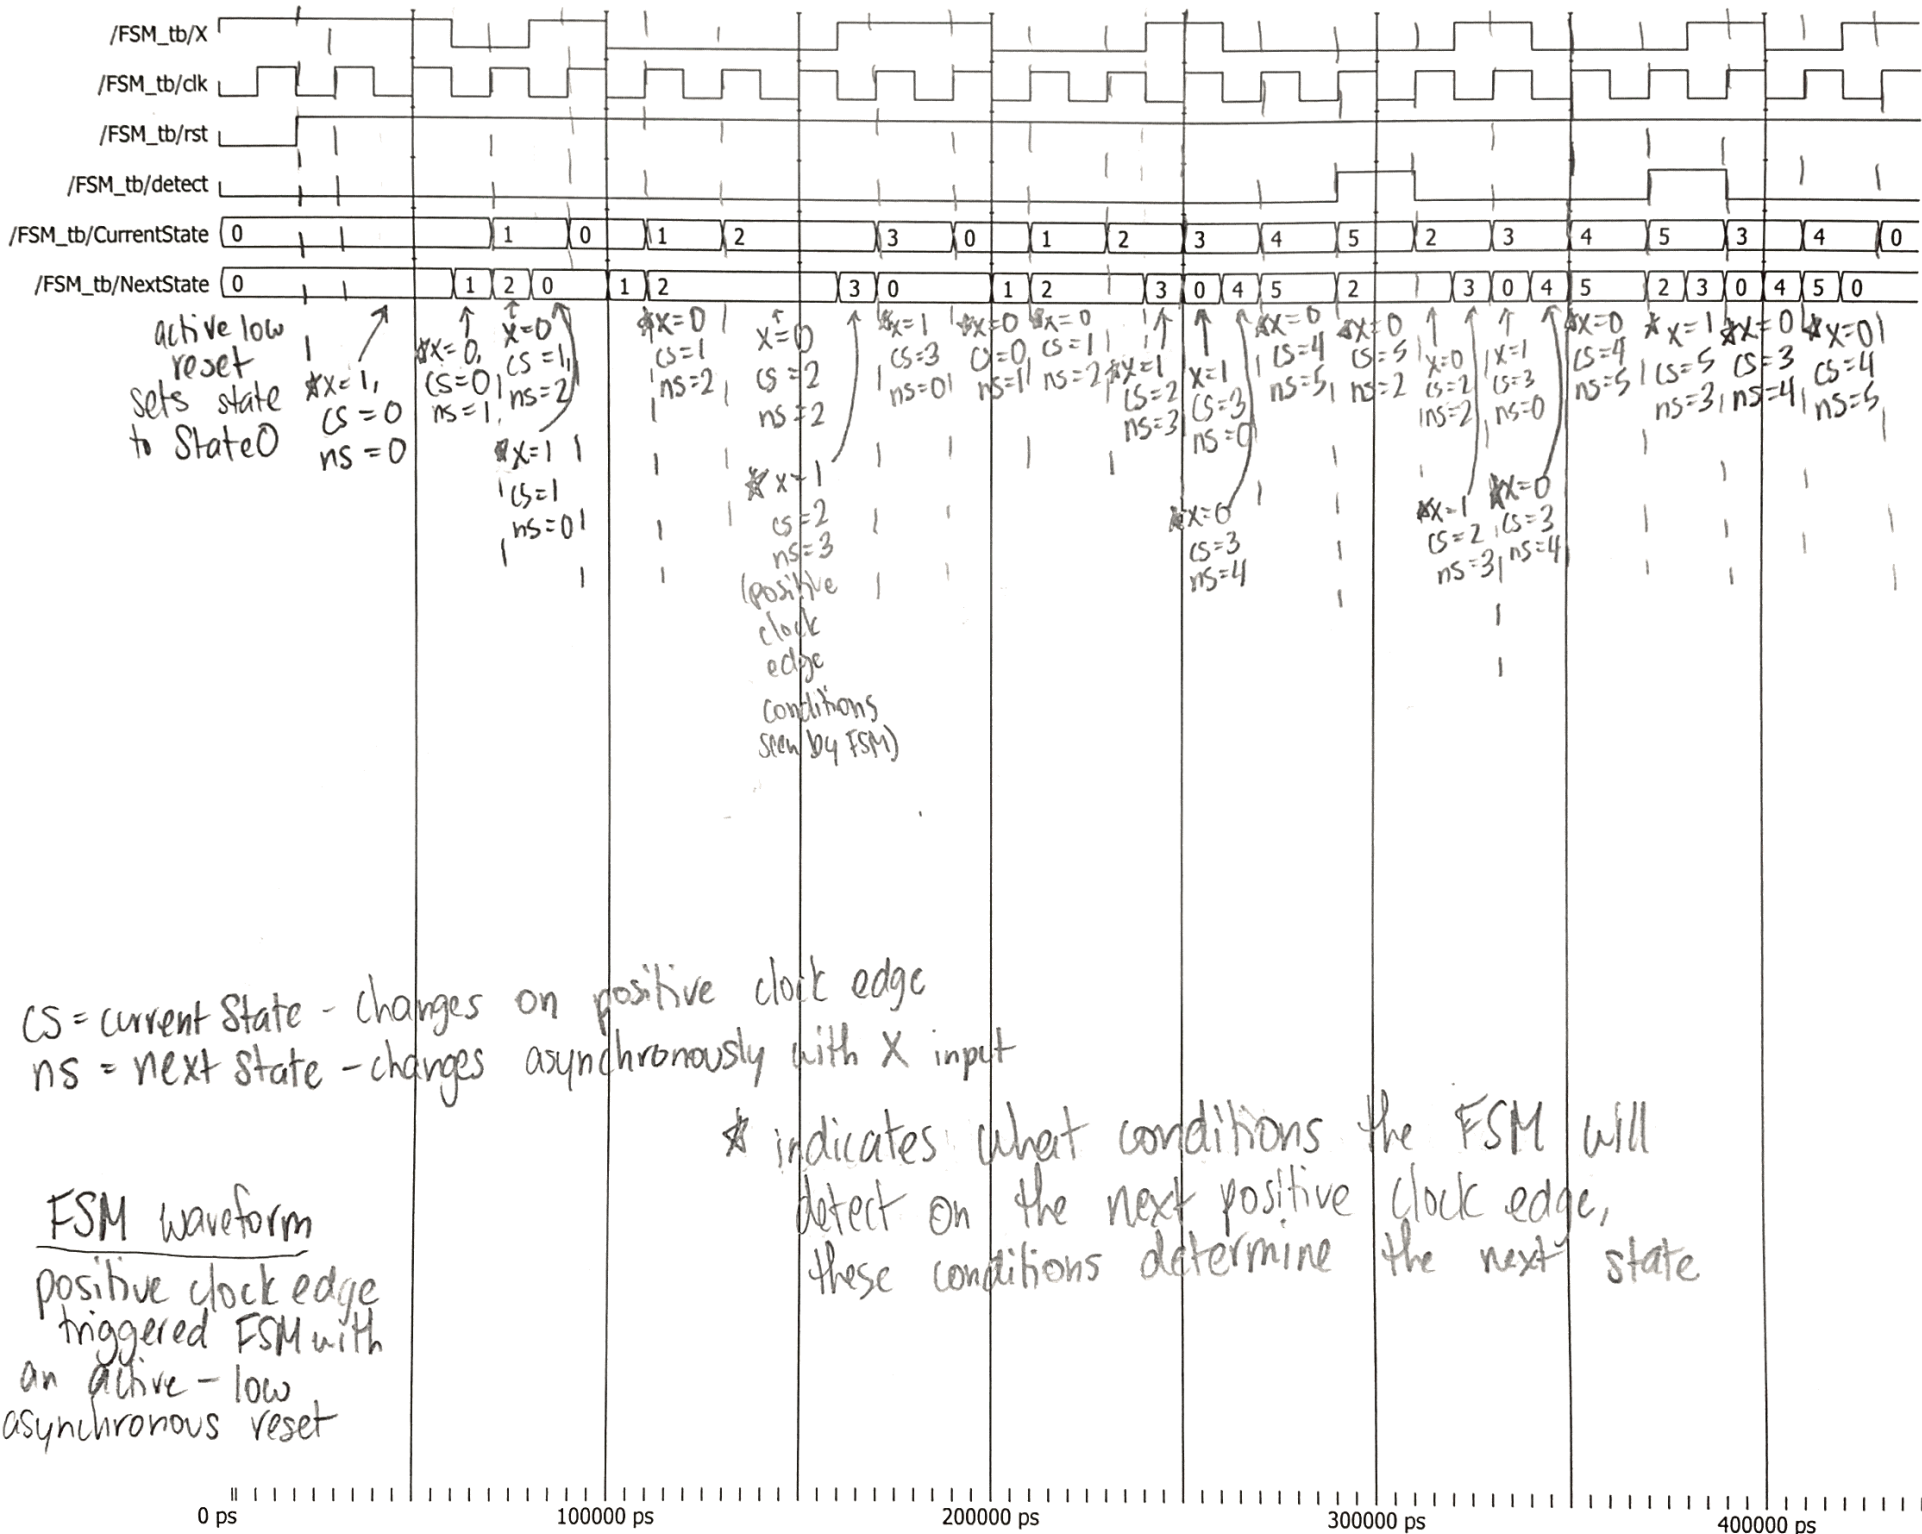 /FSM_tb/X
/FSM_tb/clk
/FSM_tb/rst
/FSM_tb/detect
/FSM_tb/CurrentState 0 1 0 1 2 3 0 1 2 3 4 5 2 3 4 5 3 4 0
/FSM_tb/NextState 0 1 2 0 1 2 3 0 1 2 3 0 4 5 2 3 0 4 5 2 3 0 4 5 0
active low
reset
sets state
to State0
*x=1,
cs=0
ns=0
*x=0,
cs=0
ns=1
x=0
cs=1,
ns=2
*x=1
cs=1
ns=0
*x=0
cs=1
ns=2
x=0
cs=2
ns=2
*x=1
cs=2
ns=3
(positive
clock
edge
conditions
seen by FSM)
*x=1
cs=3
ns=0
*x=0
cs=0
ns=1
*x=0
cs=1
ns=2
*x=1
cs=2
ns=3
x=1
cs=3
ns=0
*x=0
cs=3
ns=4
*x=0
cs=4
ns=5
*x=0
cs=5
ns=2
x=0
cs=2
ns=2
*x=1
cs=2
ns=3
x=1
cs=3
ns=0
*x=0
cs=3
ns=4
*x=0
cs=4
ns=5
*x=1
cs=5
ns=3
*x=0
cs=3
ns=4
*x=0
cs=4
ns=5
cs = current State - changes on positive clock edge
ns = next State - changes asynchronously with X input
* indicates what conditions the FSM will
detect on the next positive clock edge,
these conditions determine the next state
FSM waveform
positive clock edge
triggered FSM with
an active-low
asynchronous reset
0 ps 100000 ps 200000 ps 300000 ps 400000 ps